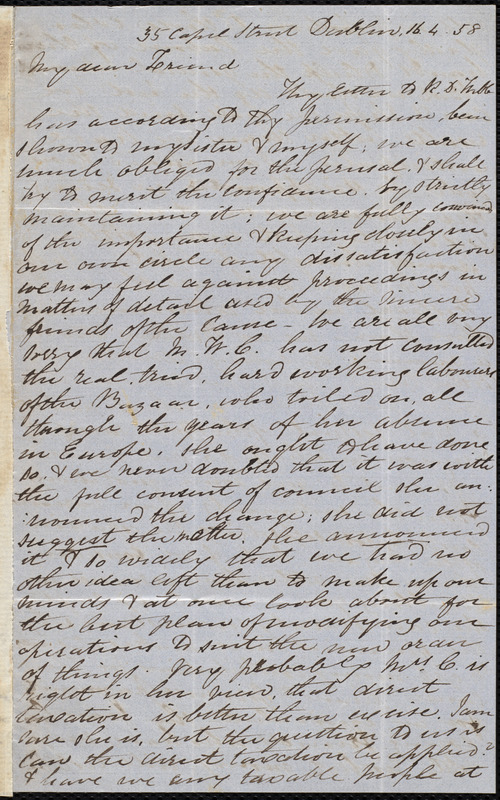 35 Capel Street Dublin, 16.4.58
My dear Friend
Thy letter to R. D. Webb
has according to thy permission, been
shown to my sister & myself; we are
much obliged for the perusal, & shall
try to merit the confidence by strictly
maintaining it; we are fully convinced
of the importance of keeping closely in
our own circle any dissatisfaction
we may feel against proceedings in
matters of detail used by the sincere
friends of the Cause - We are all very
sorry that M. W. C. has not consulted
the real, tried, hard working labourers
of the Bazaar, who toiled on, all
through the years of her absence
in Europe. She ought to have done
so, & we never doubted that it was with
the full consent of council she an-
nounced the change; she did not
suggest the matter, she announced
it & so widely that we had no
other idea left than to make up our
minds & at once look about for
the best plan of modifying our
operations to suit the new order
of things. Very probably Mrs C. is
right in her view, that direct
taxation is better than excise. I am
sure she is, but the question to us is
can the direct taxation be applied?
& have we any taxable people at